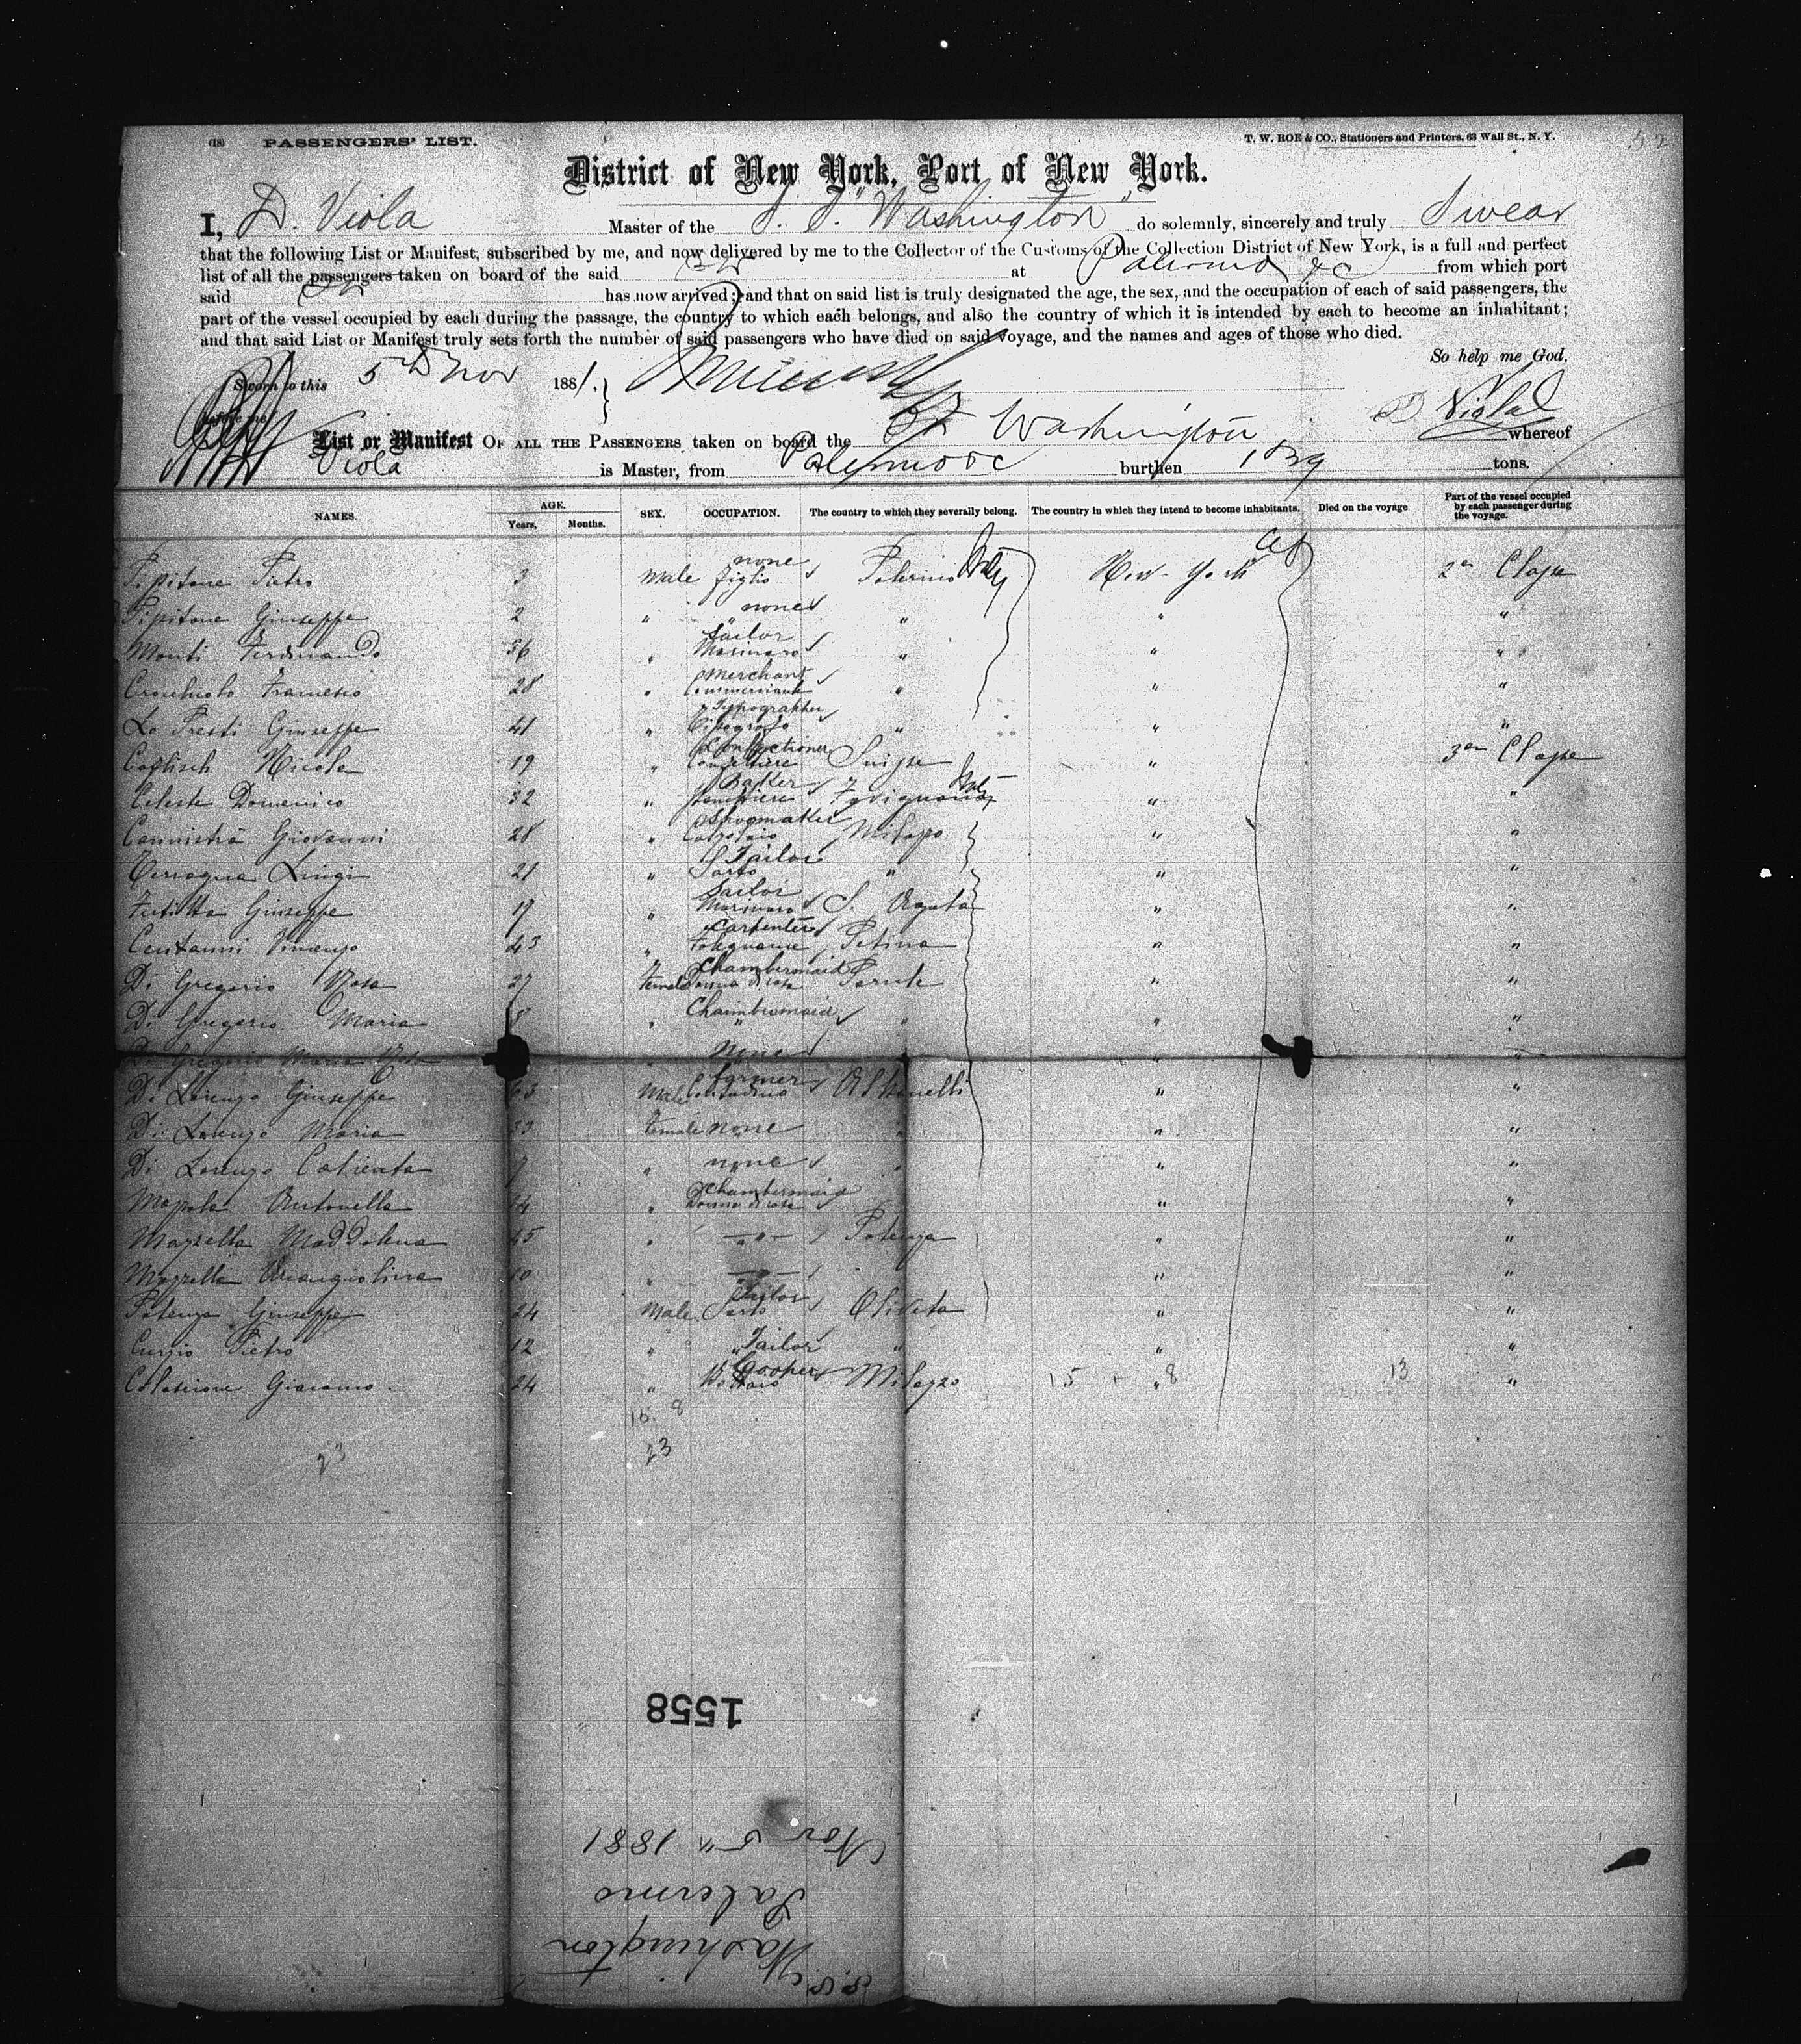 (18) PASSENGERS' LIST. T. W. ROE & CO., Stationers and Printers, 63 Wall St., N. Y. 52
District of New York, Port of New York.
I, D. Viola Master of the S. S. "Washington" do solemnly, sincerely and truly Swear
that the following List or Manifest, subscribed by me, and now delivered by me to the Collector of the Customs of the Collection District of New York, is a full and perfect
list of all the passengers taken on board of the said Str at Palermo &c from which port
said Str has now arrived; and that on said list is truly designated the age, the sex, and the occupation of each of said passengers, the
part of the vessel occupied by each during the passage, the country to which each belongs, and also the country of which it is intended by each to become an inhabitant;
and that said List or Manifest truly sets forth the number of said passengers who have died on said voyage, and the names and ages of those who died.
So help me God.
Sworn to this 5th Nov 1881.
before me D Viola
List or Manifest OF ALL THE PASSENGERS taken on board the Str Washington whereof
Viola is Master, from Palermo &c burthen 1839 tons.
NAMES. AGE. Years, Months. SEX. OCCUPATION. The country to which they severally belong. The country in which they intend to become inhabitants. Died on the voyage Part of the vessel occupied by each passenger during the voyage.
none
Pipitone Pietro 3 male figlio Palermo Italy New-York 2a Classe
Pipitone Giuseppe 2 " none " " "
Sailor
Monti Ferdinando 36 " Marinaro " " "
Merchant
28 " Commerciante " " "
Typographer
Lo Presti Giuseppe 41 " Tipografo " " "
Confectioner
Caflisch Nicola 19 " Confettiere Suisse " 3a Classe
Baker
Celeste Domenico 32 " Favignana " "
Shoemaker
Cannistrà Giovanni 28 " Calzolaio Milazzo " "
Tailor
Luigi 21 " Sarto " " "
Sailor
Giuseppe 19 " Marinaro S. Agata " "
Carpenter
Centanni Vincenzo 43 " Falegname Patina " "
Chambermaid
Di Gregorio Rosa 27 female Donna di casa " "
Di Gregorio Maria 8 " Chambermaid " " "
Di Gregorio Maria Rosa " None " "
farmer
Di Lorenzo Giuseppe 63 Male Contadino " "
Di Lorenzo Maria 33 female none " " "
Di Lorenzo Calienta 7 " none " " "
Chambermaid
Antonella 14 " Donna di casa " "
Mazzella Maddalena 45 " " Potenza " "
Mazzella Arcangiolina 10 " " " "
Tailor
Potenza Giuseppe 24 Male Sarto Oliveto " "
Curzio Pietro 12 " " Tailor " " "
Cooper
Giacomo 24 " Bottaio Milazzo 15 + 8 " 13 "
15. 8
23 23
1558
Nov 5" 1881
Palermo
Washington
S.S.